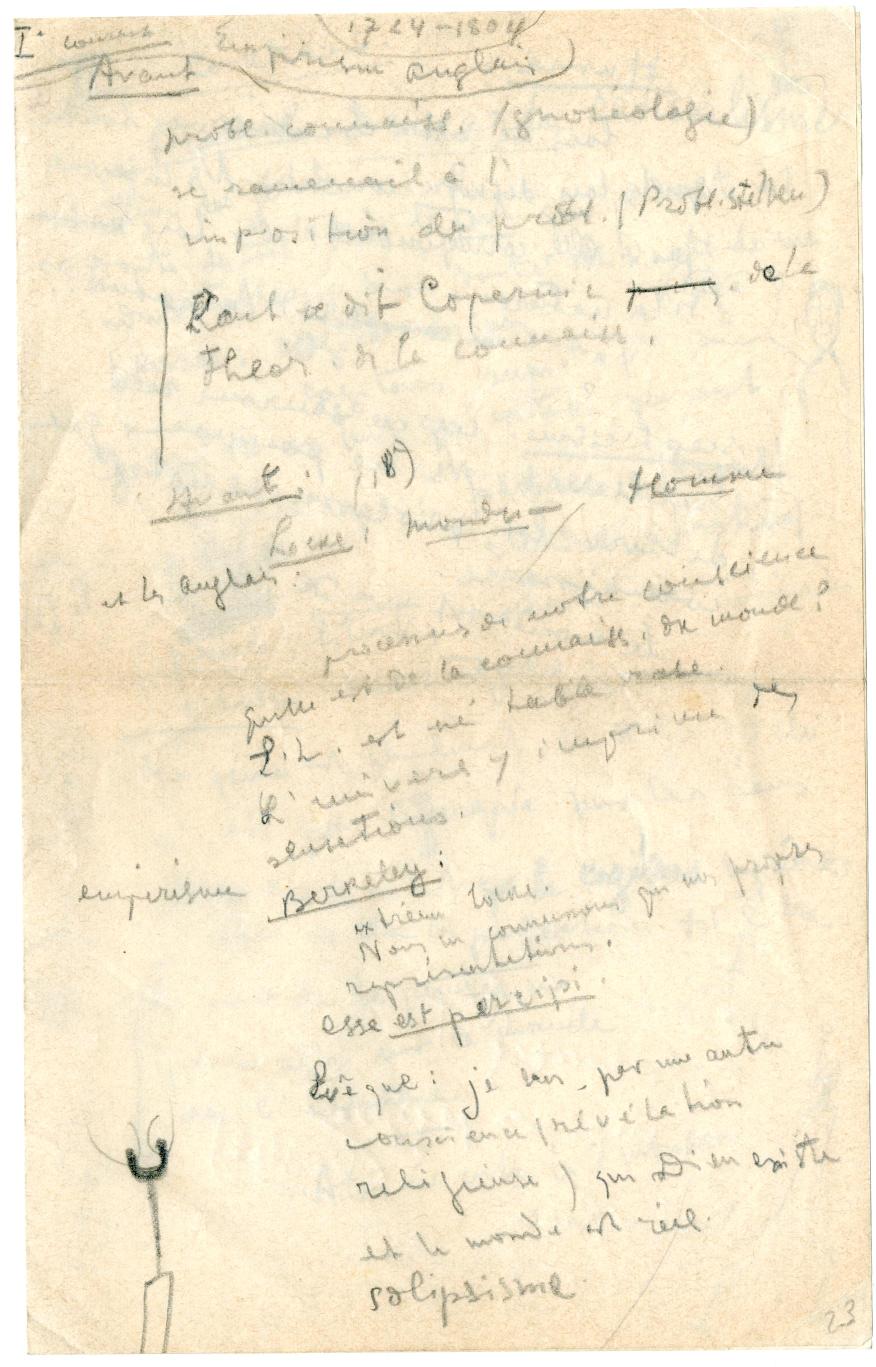 I° courant 1724-1804
Avant Empirism anglais
probl. connaiss. (gnoséologie)
se ramenait à l'
imposition du probl. (Problstellen)
Kant se dit Copernic de la
théor. de la connaiss.
Avant: (18)
Locke: monde — Homme
et les anglais:
processus de notre conscience
quelle est de la connaiss. du monde?
L'h. est né table rase.
L'univers y imprime des
sensations.
empirisme
Berkeley:
extrêm. Locke.
Nous ne connaissons que nos propres
représentations.
esse est percipi.
Evêque: je sais par une autre
conscience (révélation
religieuse) que Dieu existe
et le monde est réel.
solipsisme
23